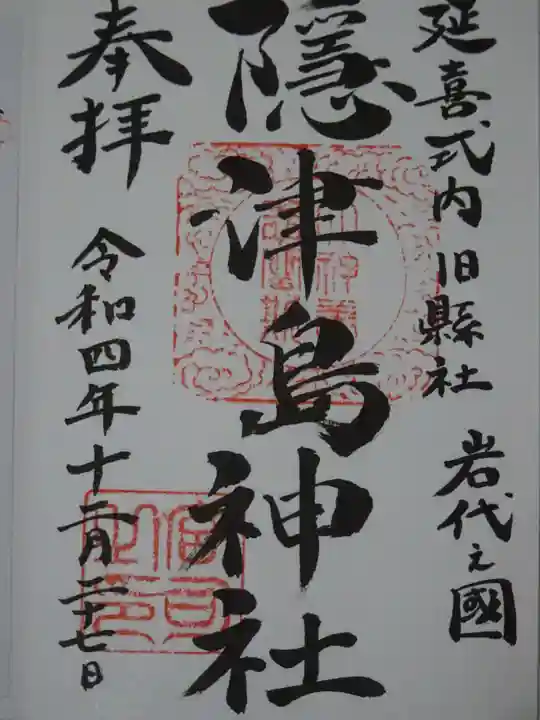 延喜式内旧縣社 岩代之國
隱津島神社
奉拝
令和四年十二月二十七日